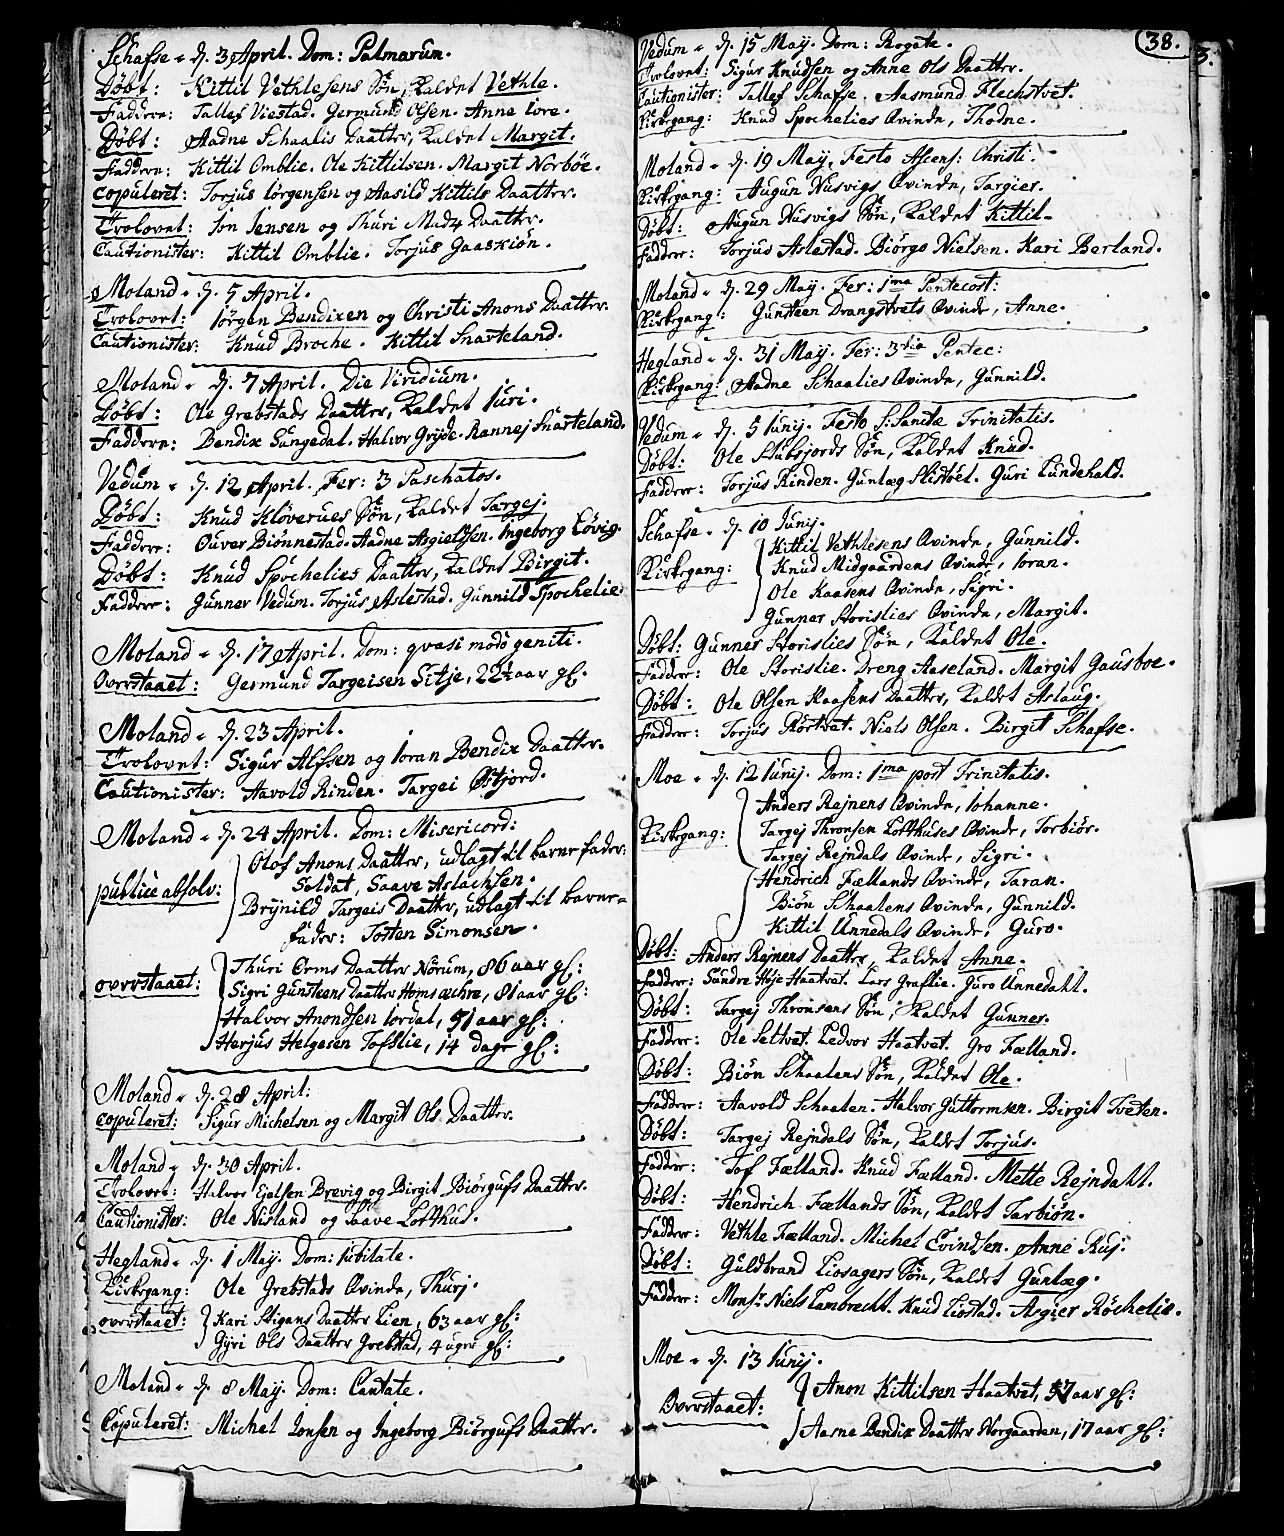 Schafse - d. 3 April. Dom: Palmarum.
Döbt: Kittil Vethlesens Sön, kaldet Vethle.
Faddere: Tallef Viestad. Germund Olsen. Anne iore.
Döbt: Aadne Schaalis Daatter, kaldet Margit.
Faddere: Kittil Omblie. Ole Kittilsen. Margit Norböe.
Copuleret: Torjus Iörgensen og Aasild Kittils Daatter.
Trolovet: Ion Iensen og Thuri Mads Daatter.
Cautionister: Kittil Omblie. Torjus Gaaskiön.
Moland - d. 5 April.
Trolovet: Iörgen Bendixen og Christi Anons Daatter.
Cautionister: Knud Broche. Kittil Snarteland.
Moland - d. 7 April. Die Viridium.
Döbt: Ole Grebstads Daatter, kaldet Iuri.
Faddere: Bendix Sungedal. Halvor Gryde. Rannej Snarteland.
Vedum - d. 12 April. Fer: 3 Paschatos.
Döbt: Knud Klöverues Sön, kaldet Targej.
Faddere: Ouver Biönnestad. Aadne Asgieldsen. Ingeborg Lövig.
Döbt: Knud Spochelies Daatter, kaldet Birgit.
Fadderer: Gunner Vedum. Torjus Aslestad. Gunnild Spochelie.
Moland - d. 17 April. Dom: qvasi modo geniti.
Overstaaet: Germund Targeisen Sitje, 22½ aar gl.
Moland - d. 23 April.
Trolovet: Sigur Alfsen og Ioran Bendix Daatter.
Cautionister: Aavold Rinden. Targei Östjord.
Moland - d. 24 April. Dom: Misericord:
publice absolv: Olof Anons Daatter, udlagt til barnefader:
Soldat, Saave Aslachsen.
Brynild Targeis Daatter, udlagt til barne=
fader: Tosten Simonsen.
overstaaet: Thuri Orms Daatter Nörum, 86 aar gl:
Sigri Gunsteens Daatter Homsæchre, 81 aar gl:
Halvor Anondsen Iordal, 51 aar gl:
Herjus Helgesen Tofslie, 14 dage gl:
Moland - d. 28 April:
Copuleret: Sigur Michelsen og Margit Ols Daatter.
Moland - d. 30 April.
Trolovet: Halvor Ejelsen Brevig og Birgit Biörgufs Daatter.
Cautionister: Ole Nisland og Saave Lofthus.
Hegland - d. 1 May. Dom: Iubilate.
Kirkegang: Ole Grebstads Qvinde, Thurj.
overstaaet: Kari Stigans Daatter Lien, 63 aar gl:
Gyri Ols Daatter Grebstad, 4 uger gl:
Moland - d. 8 May. Dom: Cantate.
Copuleret: Michel Ionsen og Ingeborg Biörgufs Daatter.
38.
Vedum - d. 15 May. Dom: Rogate.
Trolovet: Sigur Knudsen og Anne Ols Daatter.
Cautionister: Tallef Schafse, Aasmund Flechstvet.
Kirkegang: Knud Spochelies Qvinde, Thodne.
Moland - d. 19 May, Festo Ascens: Christi.
Kirkegang: Augun Nusvigs Qvinde, Targier.
Döbt: Augun Nusvigs Sön, kaldet Kittil.
Fadder: Torjus Aslestad. Biörgo Nielsen. Kari Berland.
Moland - d. 29 May. Fer: 1ma Pentecost:
Kirkegang: Gunsteen Drangstvets Qvinde, Anne.
Hegland - d. 31 May. Fer: 3tia Pentec:
Kirkegang: Aadne Schaalies Qvinde, Gunnild.
Vedum - d. 5 Iunij. Festo S:Sanctæ Trinitatis.
Döbt: Ole Stubsjords Sön, kaldet Knud.
Fadderer: Torjus Rinden. Gunlæg Slistöel. Guri Lundehald.
Schafse - d. 10 Iunij.
Kirkegang: Kittil Vethlesens Qvinde, Gunnild.
Knud Midgaardens Qvinde, Ioran.
Ole Kaasens Qvinde, Sigri.
Gunner Storislies Qvinde, Margit.
Döbt: Gunner Storislies Sön, kaldet Ole.
Fadderer: Ole Storislie. Dreng Aaseland. Margit Gausboe.
Döbt: Ole Olsen Kaasens Daatter, kaldet Aslaug.
Fadderer: Torjus Rörtvet. Niels Olsen. Birgit Schafse.
Moe - d. 12 Iunij. Dom: 1ma post Trinitatis.
Kirkegang: Anders Rejnens Qvinde, Iohanne.
Targej Thronsen Lofthuses Qvinde, Torbiör.
Targej Rejndals Qvinde, Sigri.
Hendrich Fællands Qvinde, Taran.
Biön Schaatens Qvinde, Gunnild.
Kittil Unnedals Qvinde, Guro.
Döbt: Anders Rejnens Daatter, kaldet Anne.
Fadderer: Sundre Höje Haatvet. Lars Graflie. Guro Unnedahl.
Döbt: Targej Thronsens Sön, kaldet Gunner.
Fadderer: Ole Seltvet. Ledvor Haatvet. Gro Fælland.
Döbt: Biön Schaatens Sön, kaldet Ole.
Fadderer: Aavold Schaaten. Halvor Guttormsen. Birgit Tveten.
Döbt: Targej Rejndals Sön, kaldet Torjus.
Fadderer: Tof Fælland. Knud Fælland. Mette Rejndahl.
Döbt: Hendrich Fællands Sön, kaldet Tarbiön.
Fadderer: Vethle Fælland. Michel Evindsen. Anne Ruj.
Döbt: Guldbrand Liosagers Sön, kaldet Gunlæg.
Fadderer: Monsr Niels Lambrecht. Knud Liostad. Asgier Röchelie.
Moe - d. 13 Iunij.
Overstaaet: Anon Kittilsen Haatvet, 57 aar gl:
Aasne Bendix Daatter Norgaarden, 17 aar gl: